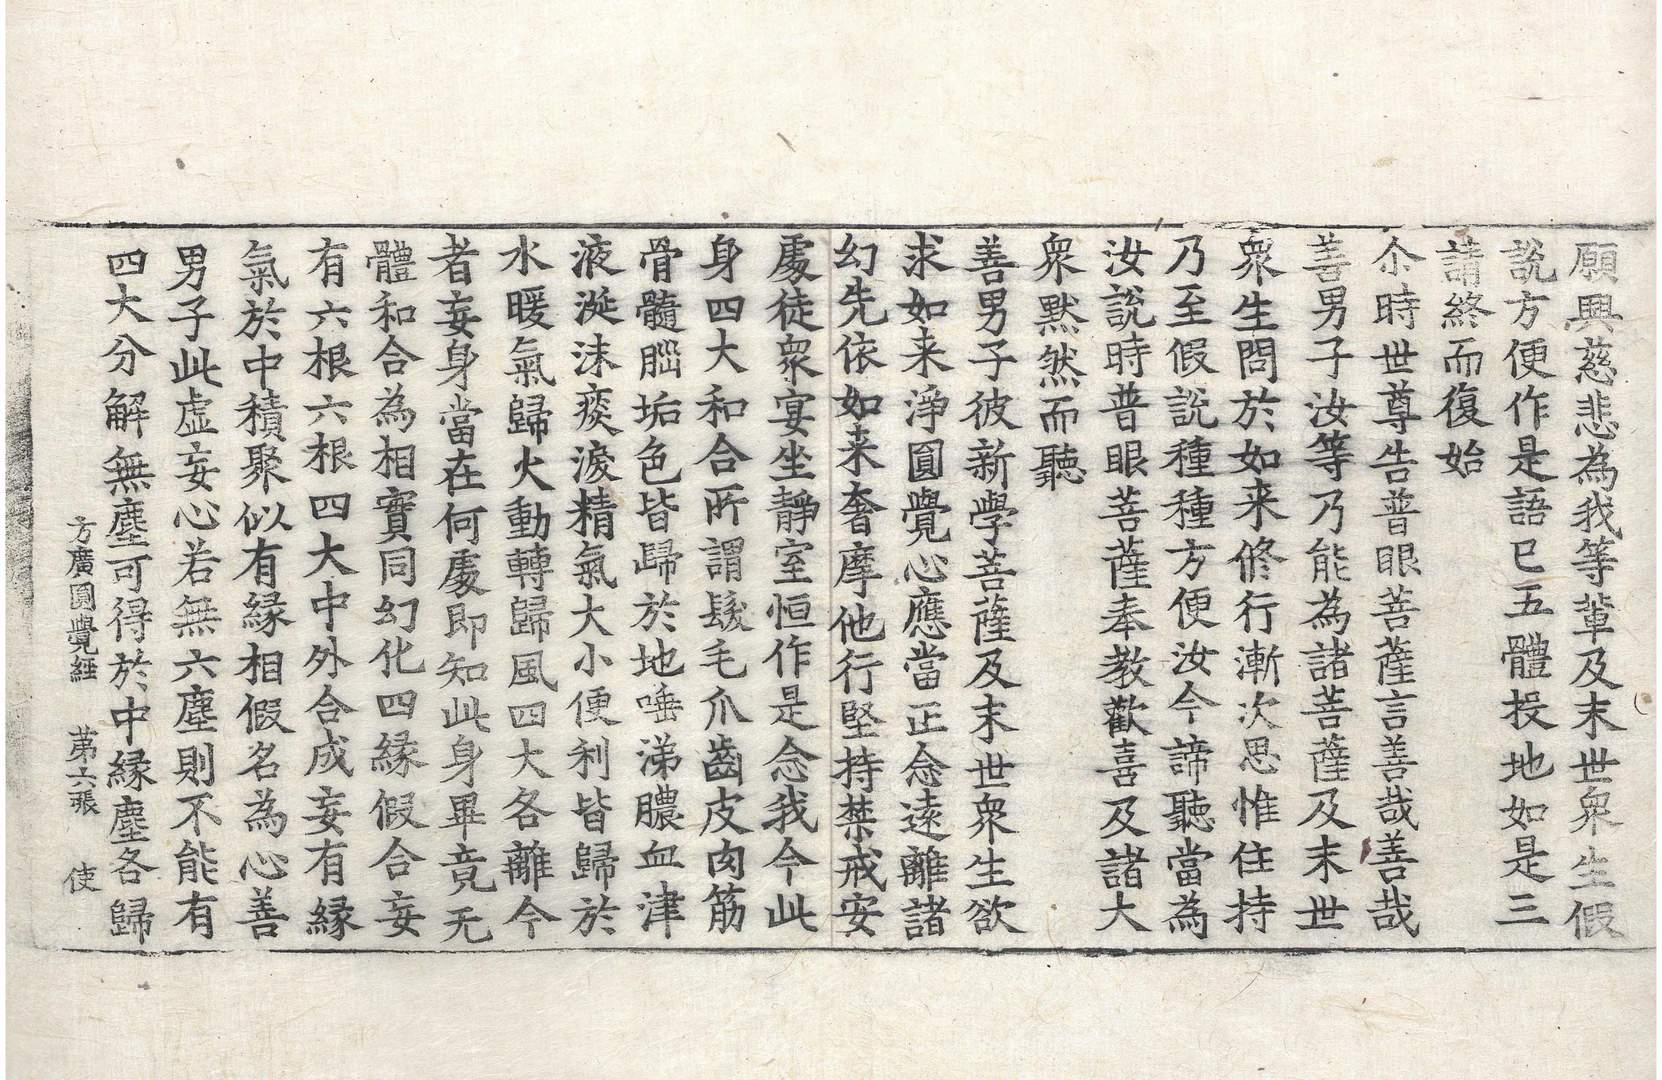 願興慈悲為我等輩及末世衆生假
說方便作是語已五體投地如是三
請終而復始
尒時世尊告普眼菩薩言善哉善哉
善男子汝等乃能為諸菩薩及末世
衆生問於如来修行漸次思惟住持
乃至假說種種方便汝今諦聽當為
汝說時普眼菩薩奉教歡喜及諸大
衆默然而聽
善男子彼新學菩薩及末世衆生欲
求如来淨圓覺心應當正念遠離諸
幻先依如来奢摩他行堅持禁戒安
處徒衆宴坐靜室恒作是念我今此
身四大和合所謂髮毛爪齒皮肉筋
骨髓腦垢色皆歸於地唾涕膿血津
液涎沫痰淚精氣大小便利皆歸於
水暖氣歸火動轉歸風四大各離今
者妄身當在何處即知此身畢竟无
體和合為相實同幻化四緣假合妄
有六根六根四大中外合成妄有緣
氣於中積聚似有緣相假名為心善
男子此虛妄心若無六塵則不能有
四大分解無塵可得於中緣塵各歸
方廣圓覺經 苐六張 使